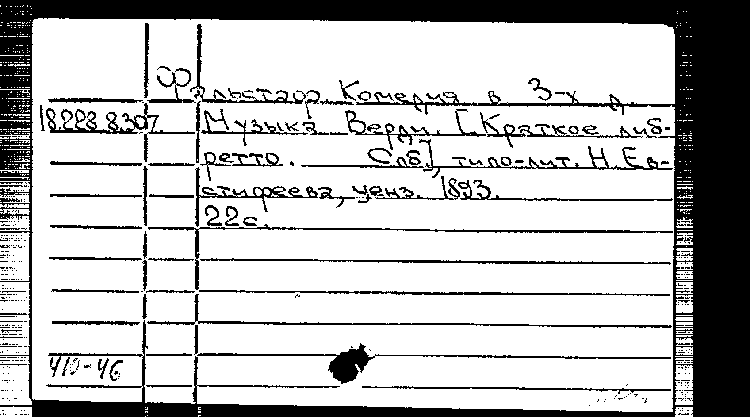 Фальстаф. Комедия в 3-х д.
18.228.8.307. Музыка Верди. [Краткое либ-
ретто. Спб], типо-лит. Н. Ев-
стифеева, ценз. 1893.
22с.
410-46